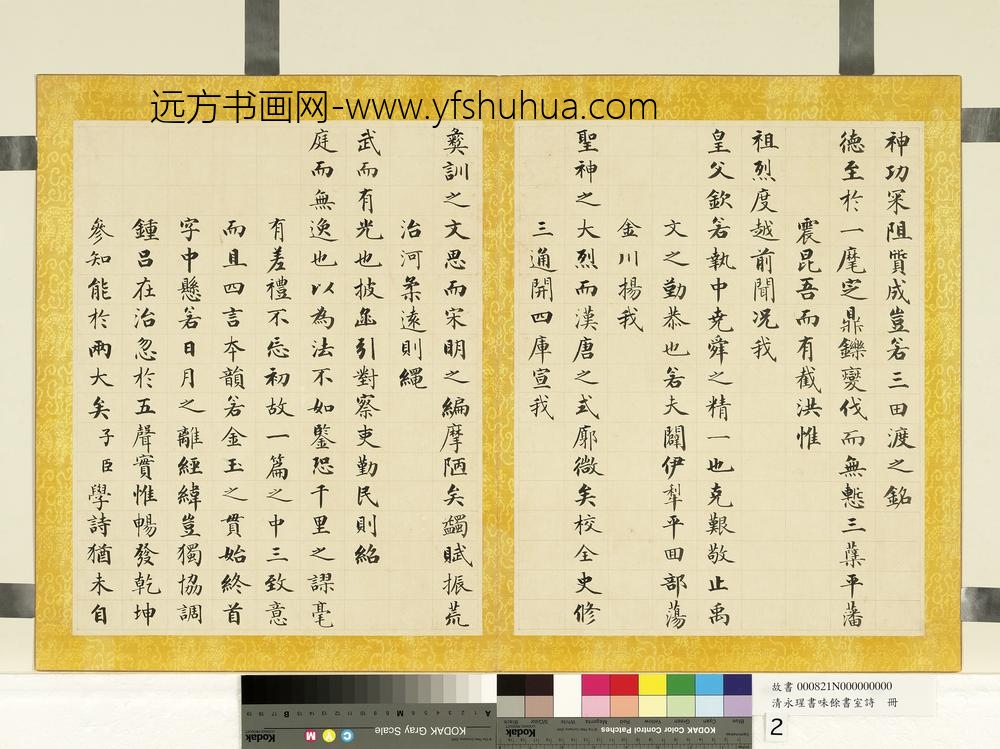 远方书画网-www.yfshuhua.com
神功冞阻質成豈若三田渡之銘
德至於一麾定鼎鑠蠻伐而無慙三蘽平藩
震昆吾而有截洪惟
祖烈度越前聞况我
皇父欽若執中堯舜之精一也克艱敬止禹
文之勤恭也若夫闢伊犁平回部蕩
金川揚我
聖神之大烈而漢唐之式廓微矣校全史修
三通開四庫宣我
彝訓之文思而宋明之編摩陋矣蠲賦振荒
治河柔遠則繩
武而有光也披函引對察吏勤民則紹
庭而無逸也以為法不如鑒恐千里之謬毫
有差禮不忘初故一篇之中三致意
而且四言本韻若金玉之貫始終首
字中懸若日月之離經緯豈獨協調
鍾呂在治忽於五聲實惟暢發乾坤
參知能於兩大矣子臣學詩猶未自
故書 000821N000000000
清永瑆書味餘書室詩 冊
2
KODAK Gray Scale
Kodak
C
Y
M
A
B
KODAK Color Control Patches
Kodak
Blue
Cyan
Green
Yellow
Red
Magenta
White
3/Color
Black